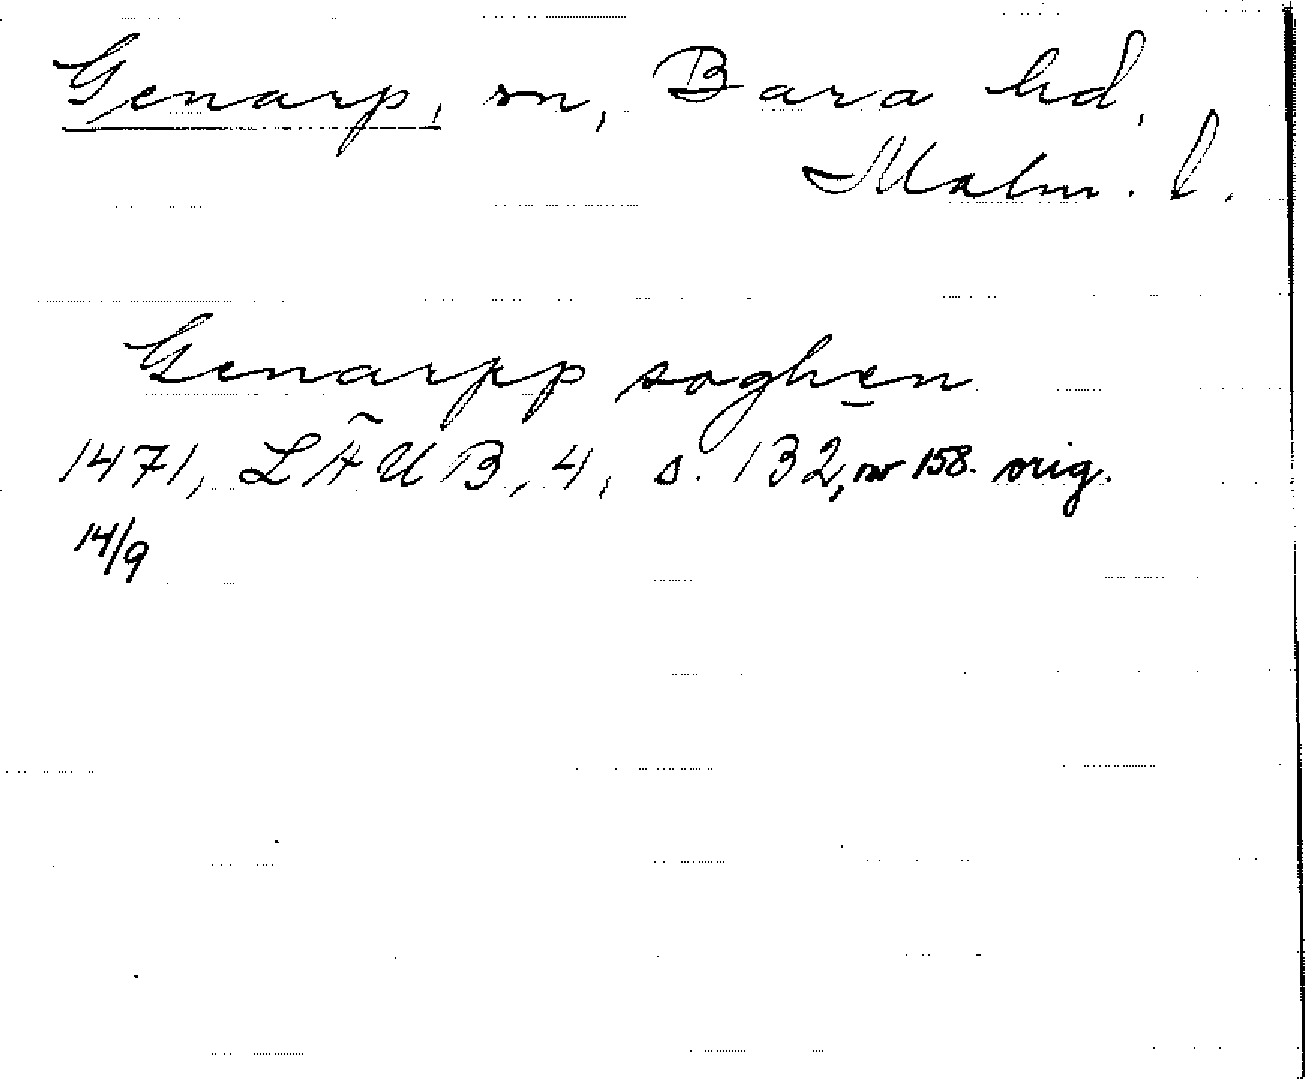 Genarp, sn, Bara hd,
Malm. l.
Genarpp soghen
1471, LÄUB, 4, s. 132, nr 158. orig.
14/9